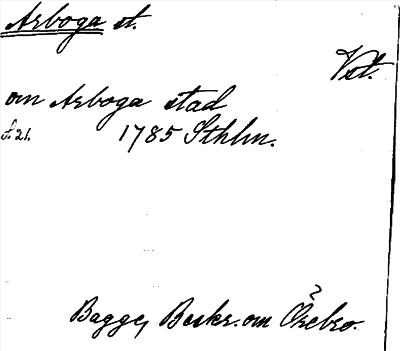 Arboga st.
Vstl.
om Arboga stad
s. 21. 1785 Sthlm.
Bagge, Beskr. om Örebro.